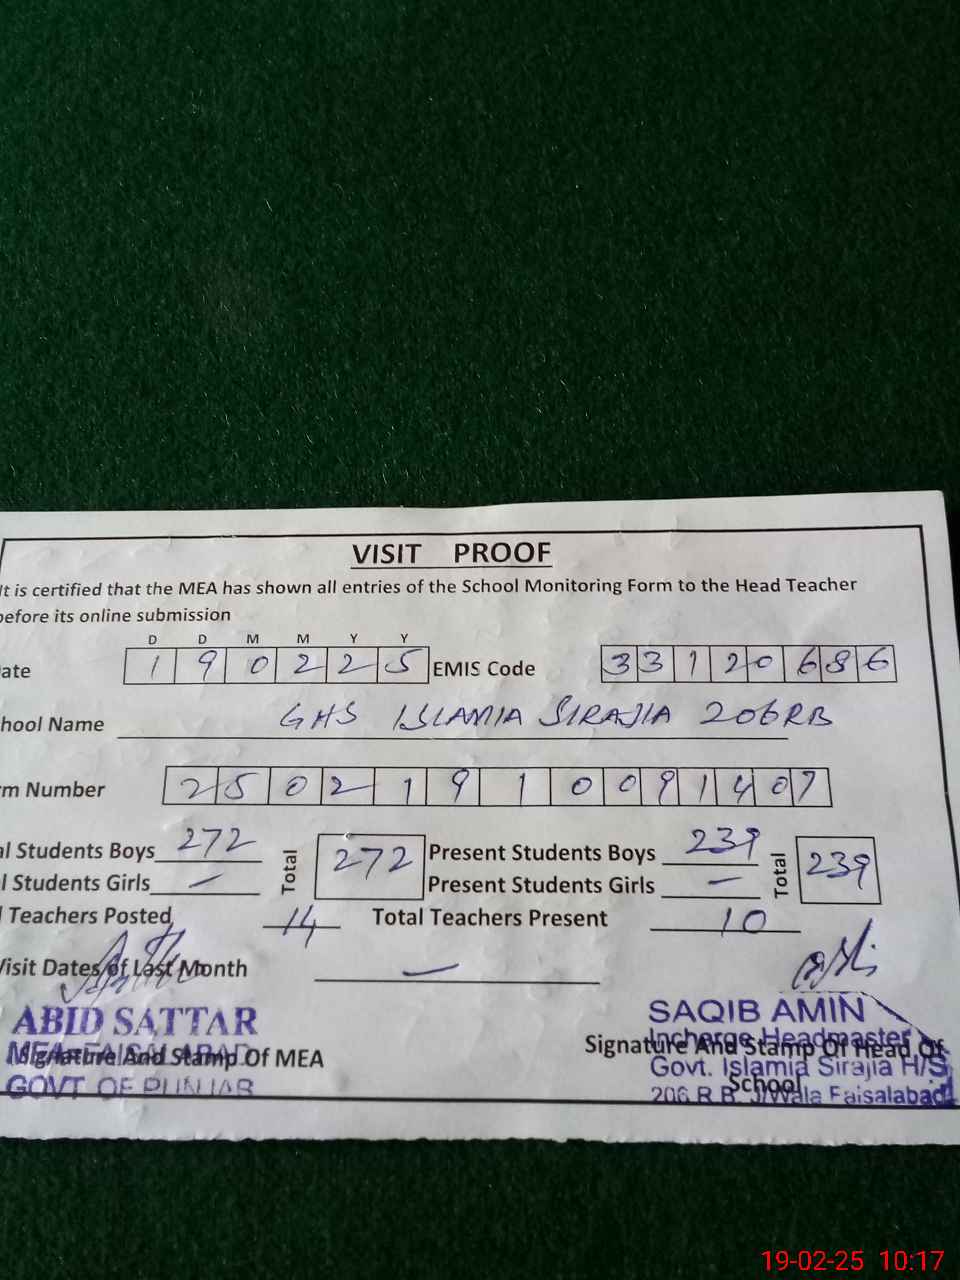 VISIT PROOF
It is certified that the MEA has shown all entries of the School Monitoring Form to the Head Teacher
before its online submission
D D M M Y Y
ate 1 9 0 2 2 5 EMIS Code 3 3 1 2 0 6 8 6
chool Name GHS ISLAMIA SIRAJIA 206RB
rm Number 2 5 0 2 1 9 1 0 0 9 1 4 0 7
al Students Boys 272 Total 272 Present Students Boys 239 Total 239
l Students Girls — Present Students Girls —
l Teachers Posted 14 Total Teachers Present 10
Visit Dates of Last Month —
ABID SATTAR
MEA FAISALABAD
GOVT OF PUNJAB
Signature And Stamp Of MEA
SAQIB AMIN
Incharge Headmaster
Govt. Islamia Sirajia H/S
206 R B J/Wala Faisalabad
Signature And Stamp Of Head Of
School
19-02-25 10:17